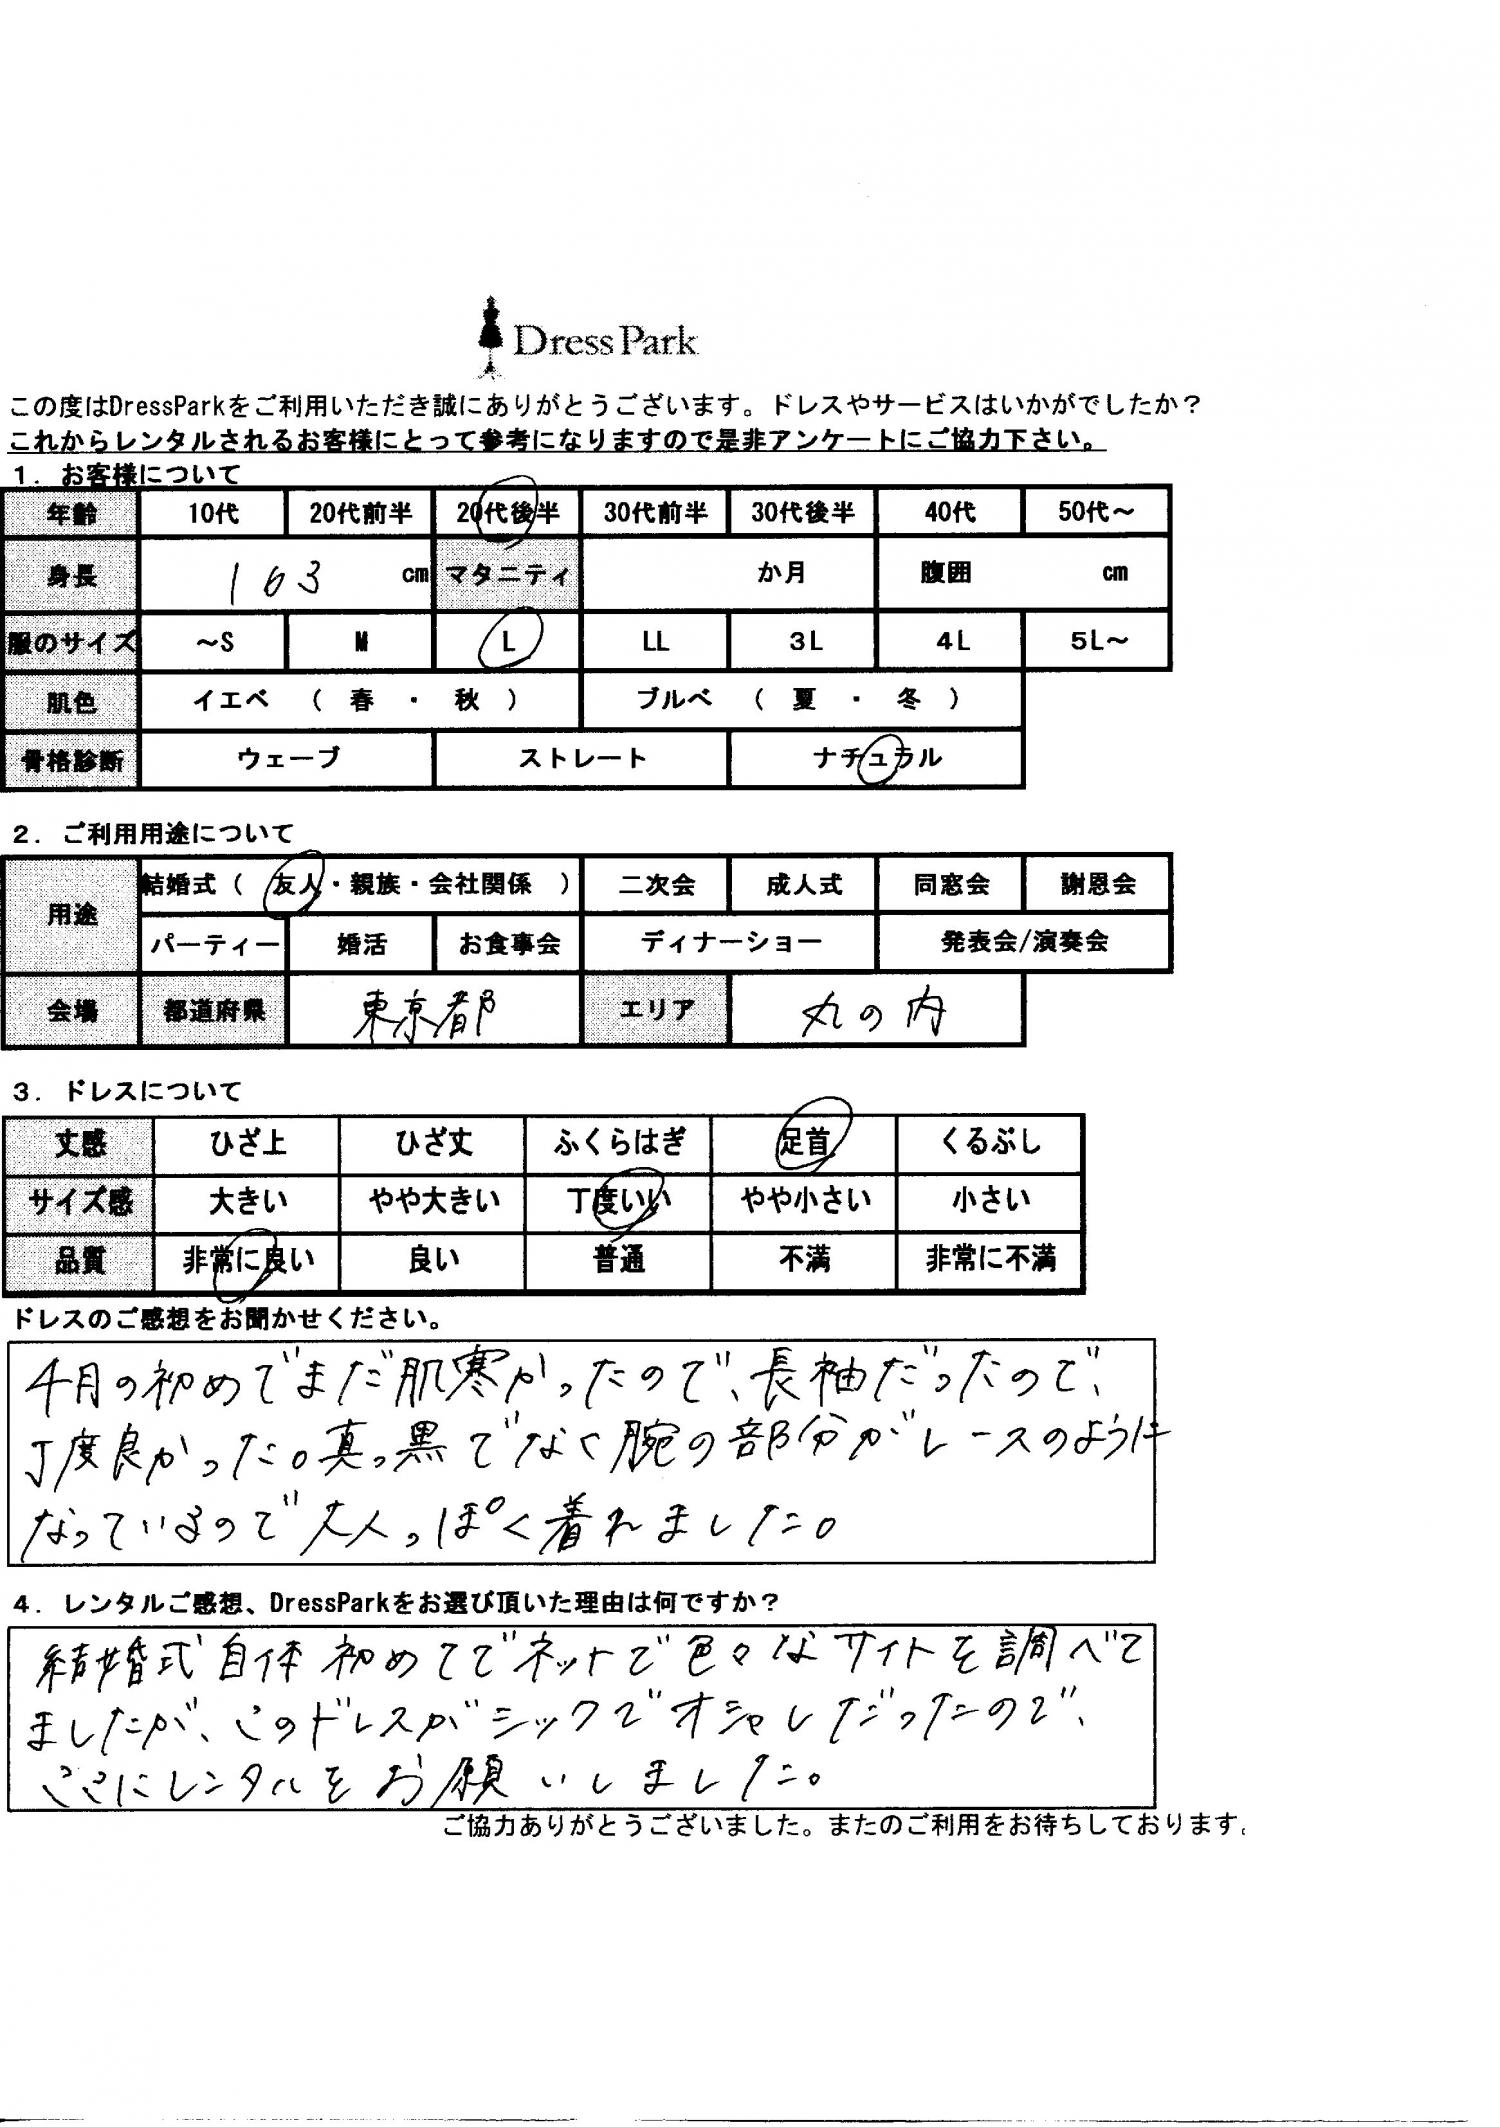 Dress Park
この度はDressParkをご利用いただき誠にありがとうございます。ドレスやサービスはいかがでしたか？
これからレンタルされるお客様にとって参考になりますので是非アンケートにご協力下さい。
１．お客様について
年齢 10代 20代前半 20代後半 30代前半 30代後半 40代 50代～
身長 163 cm マタニティ か月 腹囲 cm
服のサイズ ～S M L LL 3L 4L 5L～
肌色 イエベ （ 春 ・ 秋 ） ブルベ （ 夏 ・ 冬 ）
骨格診断 ウェーブ ストレート ナチュラル
２．ご利用用途について
用途 結婚式（ 友人・親族・会社関係 ） 二次会 成人式 同窓会 謝恩会
パーティー 婚活 お食事会 ディナーショー 発表会/演奏会
会場 都道府県 東京都 エリア 丸の内
３．ドレスについて
丈感 ひざ上 ひざ丈 ふくらはぎ 足首 くるぶし
サイズ感 大きい やや大きい 丁度いい やや小さい 小さい
品質 非常に良い 良い 普通 不満 非常に不満
ドレスのご感想をお聞かせください。
4月の初めでまだ肌寒かったので、長袖だったので、
丁度良かった。真っ黒でなく腕の部分がレースのように
なっているので大人っぽく着れました。
４．レンタルご感想、DressParkをお選び頂いた理由は何ですか？
結婚式自体初めてでネットで色々なサイトを調べて
ましたが、このドレスがシックでオシャレだったので、
ここにレンタルをお願いしました。
ご協力ありがとうございました。またのご利用をお待ちしております。